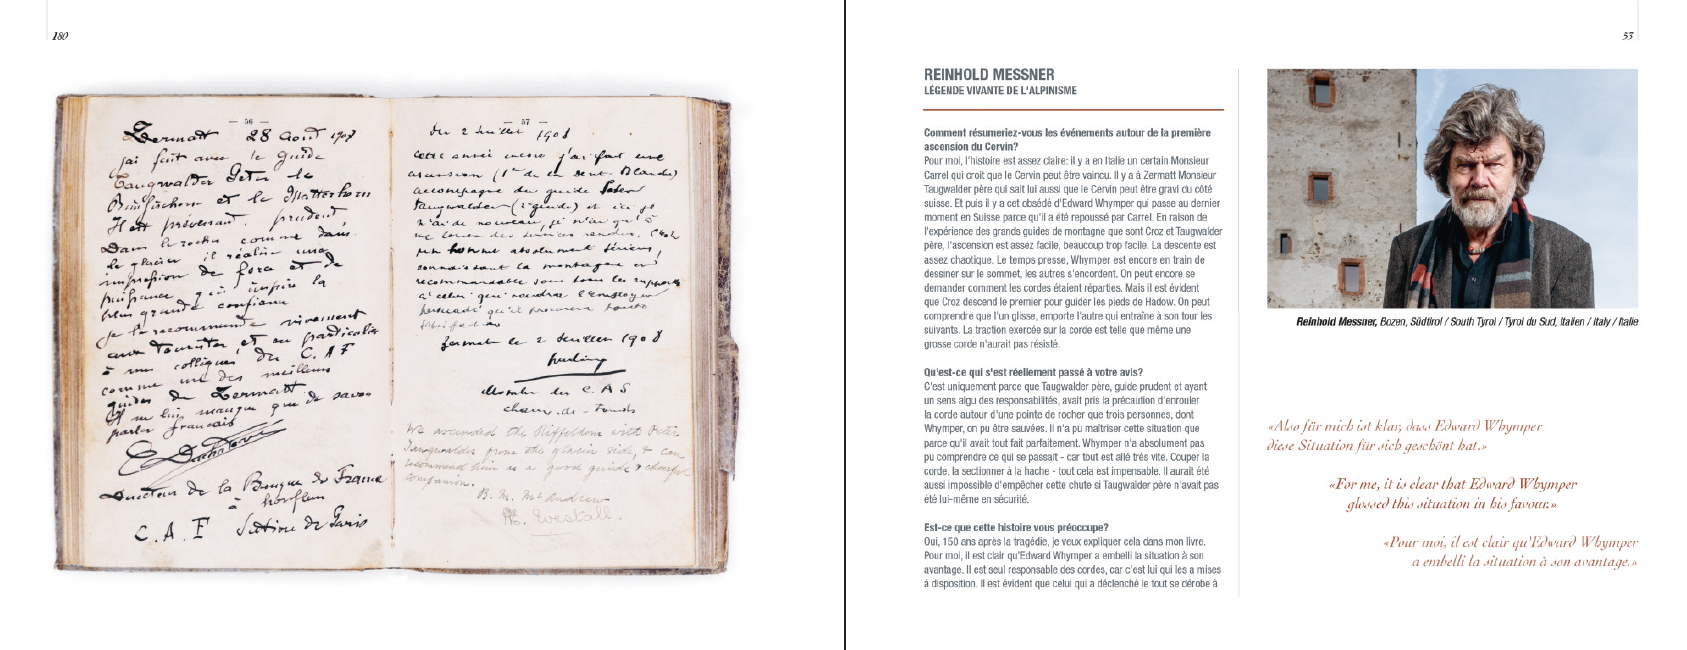 180
— 56 —
Zermatt 28 Août 1907
j'ai fait avec le guide
Taugwalder Peter le
et le Matterhorn
Il est prévenant, prudent
Dans le rocher comme dans
le glacier il réalise une
impression de force et de
puissance qui inspire la
plus grande confiance
je le recommande vivement
aux touristes et en particulier
à mes collègues du C. A F
comme un des meilleurs
guides de Zermatt
Il ne lui manque que de savoir
parler français
Directeur de la Banque de France
à honfleur
C. A. F Section de Paris
— 57 —
2 Juillet 1908
cette année encore j'ai fait une
ascension (de la Dent-Blanche)
accompagné du guide Peter
Taugwalder et ici je
n'ai de nouveau, je n'ai qu'à
me louer des services rendus. C'est
un homme absolument sérieux,
connaissant la montagne et
recommandable sous tous les rapports
à celui qui voudra l'employer
persuadé qu'il procurera toute
satisfaction
Zermatt le 2 Juillet 1908
Membre du C. A S
chaux-de-fonds
We ascended the Riffelhorn with Peter
Taugwalder from the glacier side, & can
recommend him as a good guide & cheerful
companion.
B. M. McAndrew
Westall.
53
REINHOLD MESSNER
LÉGENDE VIVANTE DE L'ALPINISME
Comment résumeriez-vous les événements autour de la première
ascension du Cervin?
Pour moi, l'histoire est assez claire: il y a en Italie un certain Monsieur
Carrel qui croit que le Cervin peut être vaincu. Il y a à Zermatt Monsieur
Taugwalder père qui sait lui aussi que le Cervin peut être gravi du côté
suisse. Et puis il y a cet obsédé d'Edward Whymper qui passe au dernier
moment en Suisse parce qu'il a été repoussé par Carrel. En raison de
l'expérience des grands guides de montagne que sont Croz et Taugwalder
père, l'ascension est assez facile, beaucoup trop facile. La descente est
assez chaotique. Le temps presse, Whymper est encore en train de
dessiner sur le sommet, les autres s'encordent. On peut encore se
demander comment les cordes étaient réparties. Mais il est évident
que Croz descend le premier pour guider les pieds de Hadow. On peut
comprendre que l'un glisse, emporte l'autre qui entraîne à son tour les
suivants. La traction exercée sur la corde est telle que même une
grosse corde n'aurait pas résisté.
Qu'est-ce qui s'est réellement passé à votre avis?
C'est uniquement parce que Taugwalder père, guide prudent et ayant
un sens aigu des responsabilités, avait pris la précaution d'enrouler
la corde autour d'une pointe de rocher que trois personnes, dont
Whymper, on pu être sauvées. Il n'a pu maîtriser cette situation que
parce qu'il avait tout fait parfaitement. Whymper n'a absolument pas
pu comprendre ce qui se passait - car tout est allé très vite. Couper la
corde, la sectionner à la hache - tout cela est impensable. Il aurait été
aussi impossible d'empêcher cette chute si Taugwalder père n'avait pas
été lui-même en sécurité.
Est-ce que cette histoire vous préoccupe?
Oui, 150 ans après la tragédie, je veux expliquer cela dans mon livre.
Pour moi, il est clair qu'Edward Whymper a embelli la situation à son
avantage. Il est seul responsable des cordes, car c'est lui qui les a mises
à disposition. Il est évident que celui qui a déclenché le tout se dérobe à
Reinhold Messner, Bozen, Südtirol / South Tyrol / Tyrol du Sud, Italien / Italy / Italie
«Also für mich ist klar, dass Edward Whymper
diese Situation für sich geschönt hat.»
«For me, it is clear that Edward Whymper
glossed this situation in his favour.»
«Pour moi, il est clair qu'Edward Whymper
a embelli la situation à son avantage.»